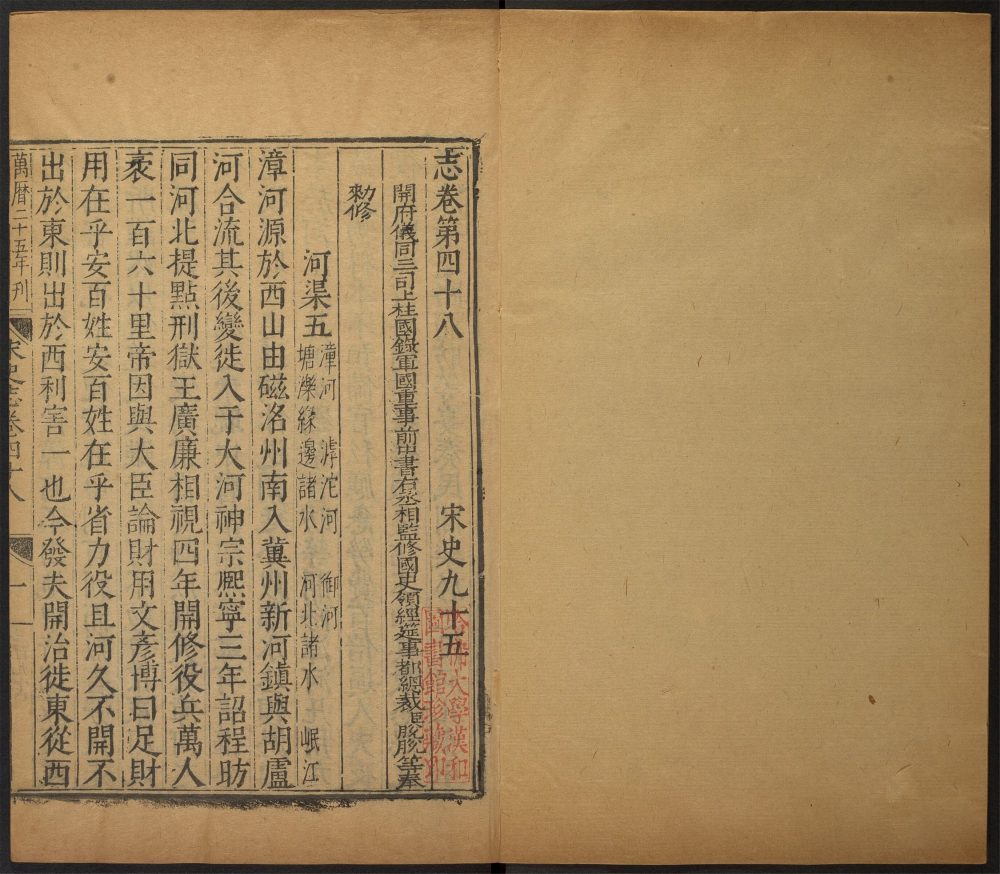 志卷第四十八 宋史九十五
開府儀同三司上柱國錄軍國重事前中書右丞相監修國史領經筵事都總裁臣脫脫等奉
勑修
河渠五 漳河 滹沱河 御河
塘濼緣邊諸水 河北諸水 岷江
漳河源於西山由磁洺州南入冀州新河鎮與胡盧
河合流其後變徙入于大河神宗熙寧三年詔程昉
同河北提點刑獄王廣廉相視四年開修役兵萬人
袤一百六十里帝因與大臣論財用文彥博曰足財
用在乎安百姓安百姓在乎省力役且河久不開不
出於東則出於西利害一也今發夫開治徙東從西
萬曆二十五年刊 宋史志卷四十八 一
哈佛大學漢和
圖書館珍藏印